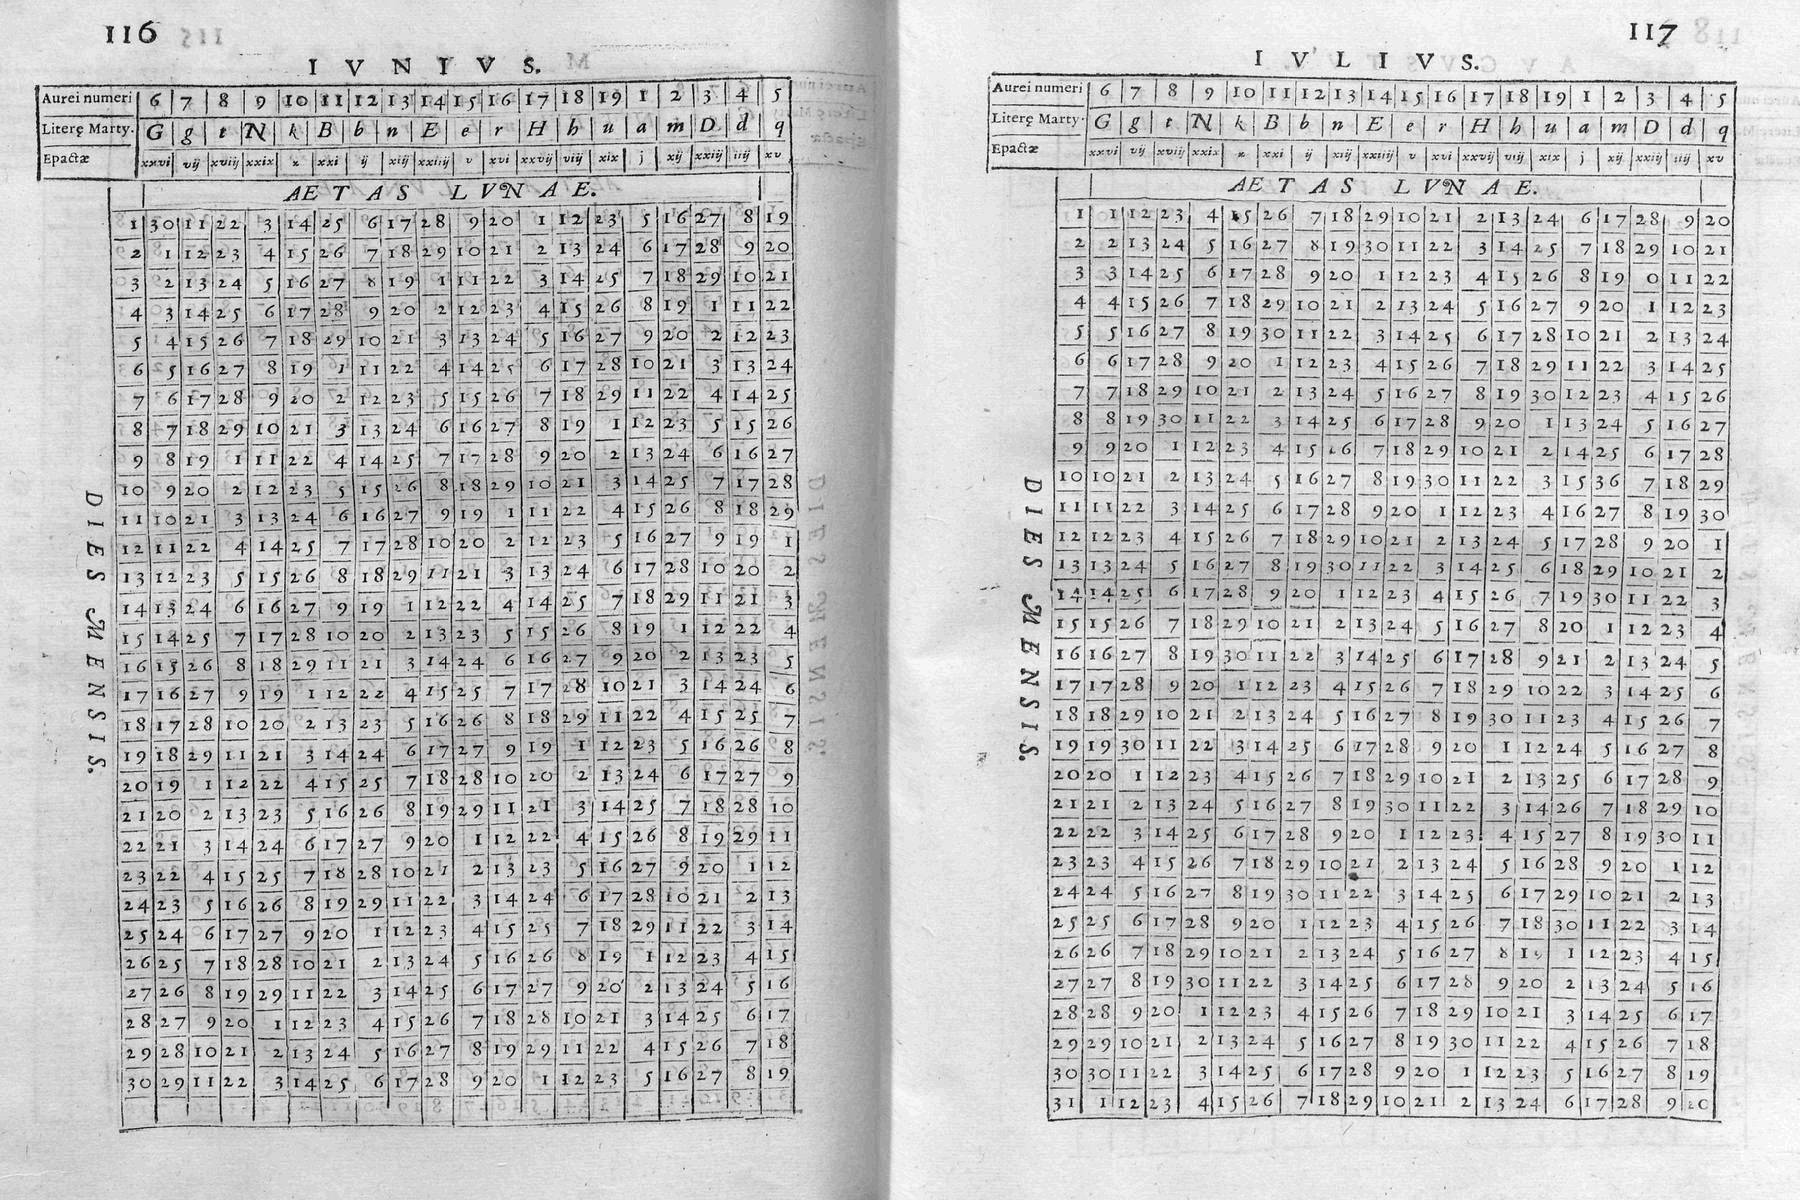 116
IVNIVS.
Aurei numeri 6 7 8 9 10 11 12 13 14 15 16 17 18 19 1 2 3 4 5
Literę Marty. G g t N k B b n E e r H h u a m D d q
Epactæ xxvi vij xviij xxix x xxi ij xiij xxiiij v xvi xxvij viij xix j xij xxiij iiij xv
AETAS LVNAE.
DIES MENSIS.
1 30 11 22 3 14 25 6 17 28 9 20 1 12 23 5 16 27 8 19
2 1 12 23 4 15 26 7 18 29 10 21 2 13 24 6 17 28 9 20
3 2 13 24 5 16 27 8 19 1 11 22 3 14 25 7 18 29 10 21
4 3 14 25 6 17 28 9 20 2 12 23 4 15 26 8 19 1 11 22
5 4 15 26 7 18 29 10 21 3 13 24 5 16 27 9 20 2 12 23
6 5 16 27 8 19 1 11 22 4 14 25 6 17 28 10 21 3 13 24
7 6 17 28 9 20 2 12 23 5 15 26 7 18 29 11 22 4 14 25
8 7 18 29 10 21 3 13 24 6 16 27 8 19 1 12 23 5 15 26
9 8 19 1 11 22 4 14 25 7 17 28 9 20 2 13 24 6 16 27
10 9 20 2 12 23 5 15 26 8 18 29 10 21 3 14 25 7 17 28
11 10 21 3 13 24 6 16 27 9 19 1 11 22 4 15 26 8 18 29
12 11 22 4 14 25 7 17 28 10 20 2 12 23 5 16 27 9 19 1
13 12 23 5 15 26 8 18 29 11 21 3 13 24 6 17 28 10 20 2
14 13 24 6 16 27 9 19 1 12 22 4 14 25 7 18 29 11 21 3
15 14 25 7 17 28 10 20 2 13 23 5 15 26 8 19 1 12 22 4
16 15 26 8 18 29 11 21 3 14 24 6 16 27 9 20 2 13 23 5
17 16 27 9 19 1 12 22 4 15 25 7 17 28 10 21 3 14 24 6
18 17 28 10 20 2 13 23 5 16 26 8 18 29 11 22 4 15 25 7
19 18 29 11 21 3 14 24 6 17 27 9 19 1 12 23 5 16 26 8
20 19 1 12 22 4 15 25 7 18 28 10 20 2 13 24 6 17 27 9
21 20 2 13 23 5 16 26 8 19 29 11 21 3 14 25 7 18 28 10
22 21 3 14 24 6 17 27 9 20 1 12 22 4 15 26 8 19 29 11
23 22 4 15 25 7 18 28 10 21 2 13 23 5 16 27 9 20 1 12
24 23 5 16 26 8 19 29 11 22 3 14 24 6 17 28 10 21 2 13
25 24 6 17 27 9 20 1 12 23 4 15 25 7 18 29 11 22 3 14
26 25 7 18 28 10 21 2 13 24 5 16 26 8 19 1 12 23 4 15
27 26 8 19 29 11 22 3 14 25 6 17 27 9 20 2 13 24 5 16
28 27 9 20 1 12 23 4 15 26 7 18 28 10 21 3 14 25 6 17
29 28 10 21 2 13 24 5 16 27 8 19 29 11 22 4 15 26 7 18
30 29 11 22 3 14 25 6 17 28 9 20 1 12 23 5 16 27 8 19
117
IVLIVS.
Aurei numeri 6 7 8 9 10 11 12 13 14 15 16 17 18 19 1 2 3 4 5
Literę Marty. G g t N k B b n E e r H h u a m D d q
Epactæ xxvi vij xviij xxix x xxi ij xiij xxiiij v xvi xxvij viij xix j xij xxiij iiij xv
AETAS LVNAE.
DIES MENSIS.
1 1 12 23 4 15 26 7 18 29 10 21 2 13 24 6 17 28 9 20
2 2 13 24 5 16 27 8 19 30 11 22 3 14 25 7 18 29 10 21
3 3 14 25 6 17 28 9 20 1 12 23 4 15 26 8 19 0 11 22
4 4 15 26 7 18 29 10 21 2 13 24 5 16 27 9 20 1 12 23
5 5 16 27 8 19 30 11 22 3 14 25 6 17 28 10 21 2 13 24
6 6 17 28 9 20 1 12 23 4 15 26 7 18 29 11 22 3 14 25
7 7 18 29 10 21 2 13 24 5 16 27 8 19 30 12 23 4 15 26
8 8 19 30 11 22 3 14 25 6 17 28 9 20 1 13 24 5 16 27
9 9 20 1 12 23 4 15 26 7 18 29 10 21 2 14 25 6 17 28
10 10 21 2 13 24 5 16 27 8 19 30 11 22 3 15 36 7 18 29
11 11 22 3 14 25 6 17 28 9 20 1 12 23 4 16 27 8 19 30
12 12 23 4 15 26 7 18 29 10 21 2 13 24 5 17 28 9 20 1
13 13 24 5 16 27 8 19 30 11 22 3 14 25 6 18 29 10 21 2
14 14 25 6 17 28 9 20 1 12 23 4 15 26 7 19 30 11 22 3
15 15 26 7 18 29 10 21 2 13 24 5 16 27 8 20 1 12 23 4
16 16 27 8 19 30 11 22 3 14 25 6 17 28 9 21 2 13 24 5
17 17 28 9 20 1 12 23 4 15 26 7 18 29 10 22 3 14 25 6
18 18 29 10 21 2 13 24 5 16 27 8 19 30 11 23 4 15 26 7
19 19 30 11 22 3 14 25 6 17 28 9 20 1 12 24 5 16 27 8
20 20 1 12 23 4 15 26 7 18 29 10 21 2 13 25 6 17 28 9
21 21 2 13 24 5 16 27 8 19 30 11 22 3 14 26 7 18 29 10
22 22 3 14 25 6 17 28 9 20 1 12 23 4 15 27 8 19 30 11
23 23 4 15 26 7 18 29 10 21 2 13 24 5 16 28 9 20 1 12
24 24 5 16 27 8 19 30 11 22 3 14 25 6 17 29 10 21 2 13
25 25 6 17 28 9 20 1 12 23 4 15 26 7 18 30 11 22 3 14
26 26 7 18 29 10 21 2 13 24 5 16 27 8 19 1 12 23 4 15
27 27 8 19 30 11 22 3 14 25 6 17 28 9 20 2 13 24 5 16
28 28 9 20 1 12 23 4 15 26 7 18 29 10 21 3 14 25 6 17
29 29 10 21 2 13 24 5 16 27 8 19 30 11 22 4 15 26 7 18
30 30 11 22 3 14 25 6 17 28 9 20 1 12 23 5 16 27 8 19
31 1 12 23 4 15 26 7 18 29 10 21 2 13 24 6 17 28 9 20